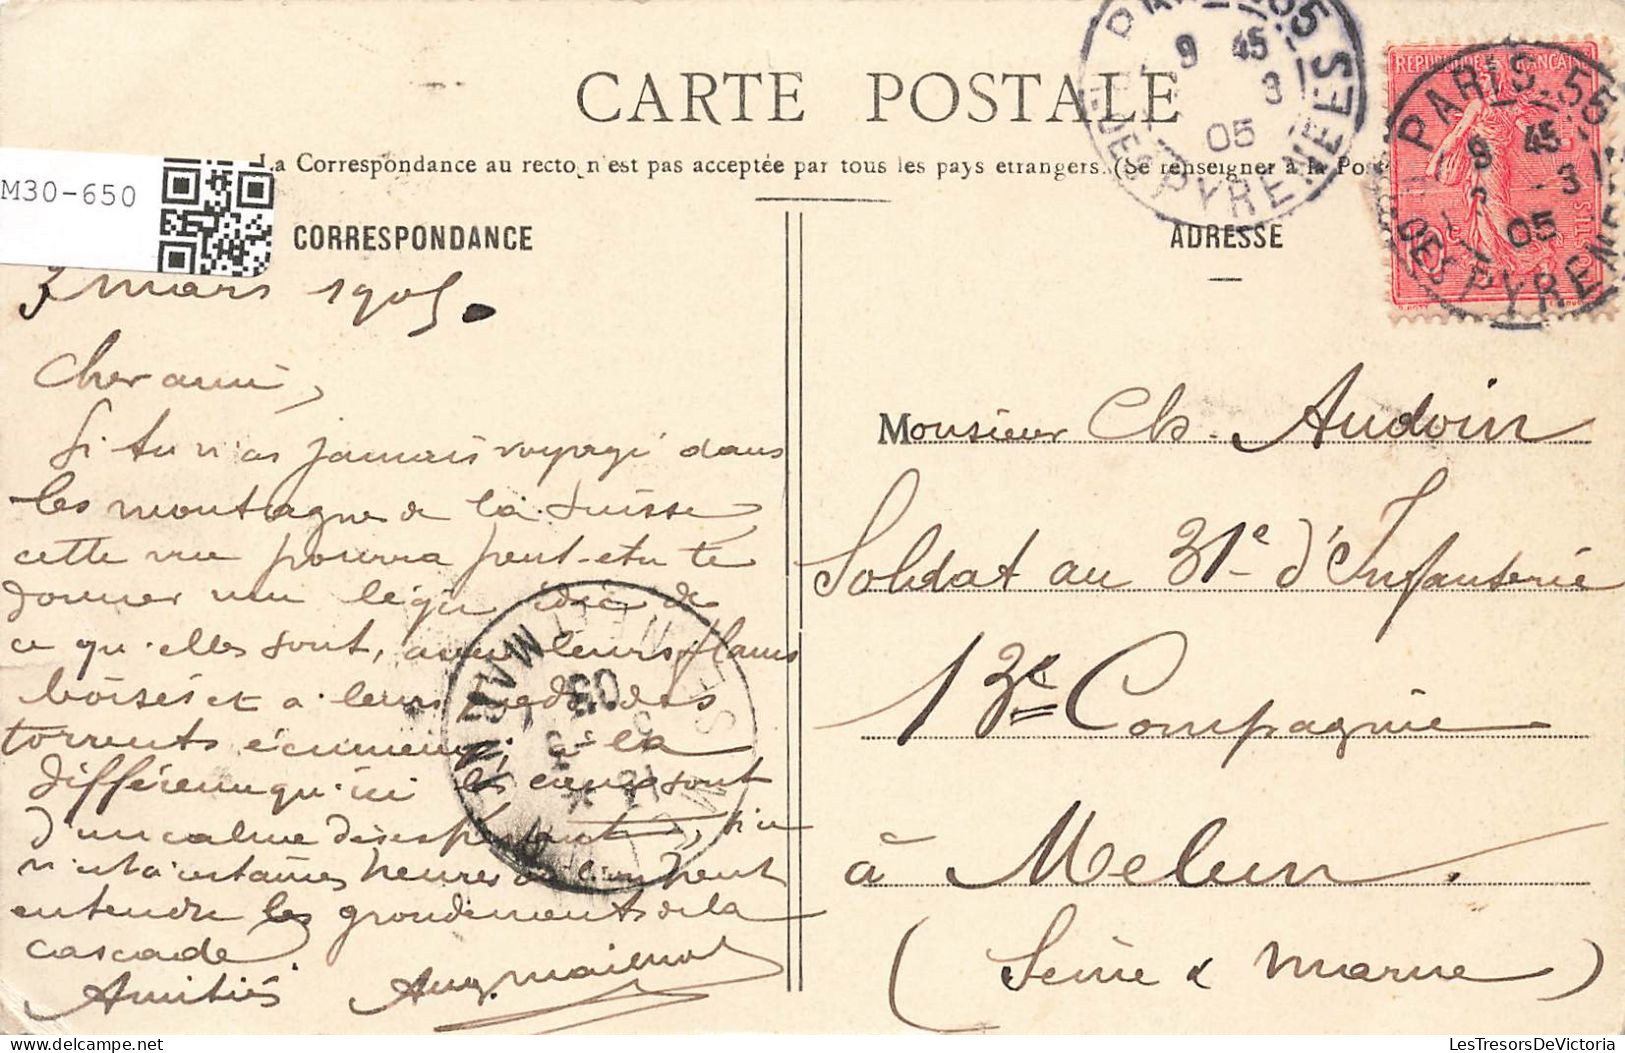 CARTE POSTALE
La Correspondance au recto n'est pas acceptée par tous les pays etrangers. (Se renseigner à la Poste
M30-650
CORRESPONDANCE
ADRESSE
PARIS 55
9 45
3
05
R. DES PYRENEES
REPUBLIQUE FRANÇAISE
PARIS 55
9 45
3
05
DES PYRENEES
3 mars 1905.
Cher ami,
Si tu n'as jamais voyagé dans
les montagnes de la Suisse,
cette vue pourra peut-etre te
donner une légère idée de
ce qu'elles sont, avec leurs flancs
boisés et à leurs pieds des
torrents écumeux; à la
différence qu'ici les eaux sont
d'un calme désespérant, si ce
n'est à certaines heures où l'on peut
entendre les grondements de la
cascade
Amitiés Aug.
Monsieur Ch. Audoin
Soldat au 31e d'Infanterie
13e Compagnie
à Melun.
(Seine & Marne)
MELUN
SEINE-ET-MARNE
LesTresorsDeVictoria